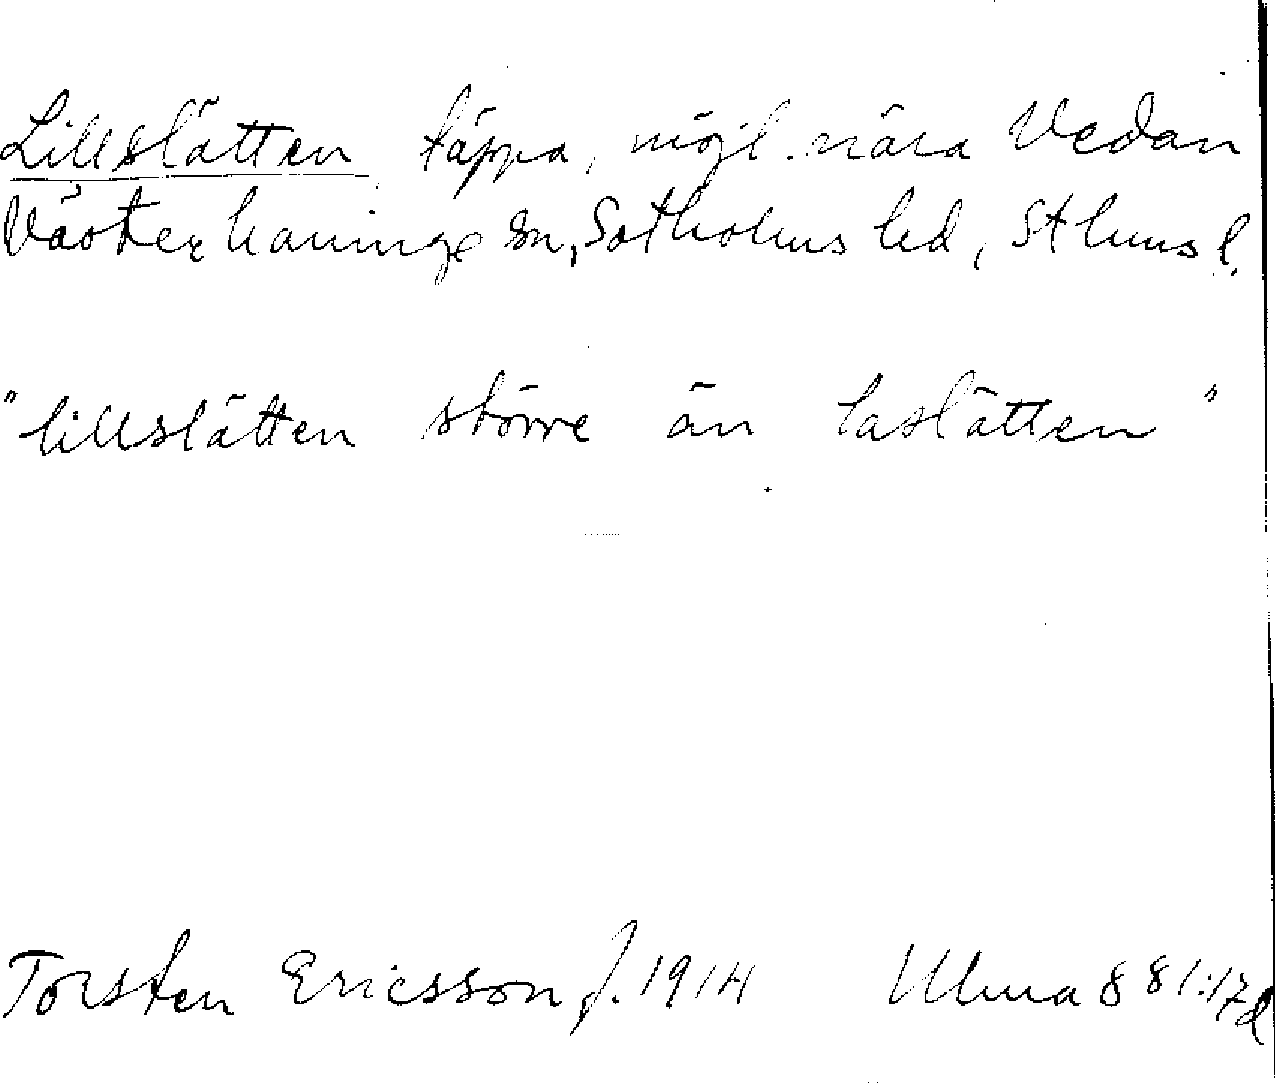 Lillslätten täppa, möjl. nära Vedan
Västerhaninge sn, Sotholms hd, Sthms l.
"lillslätten större än laslätten"
Torsten Ericsson f. 1914 Ulma 881:17d